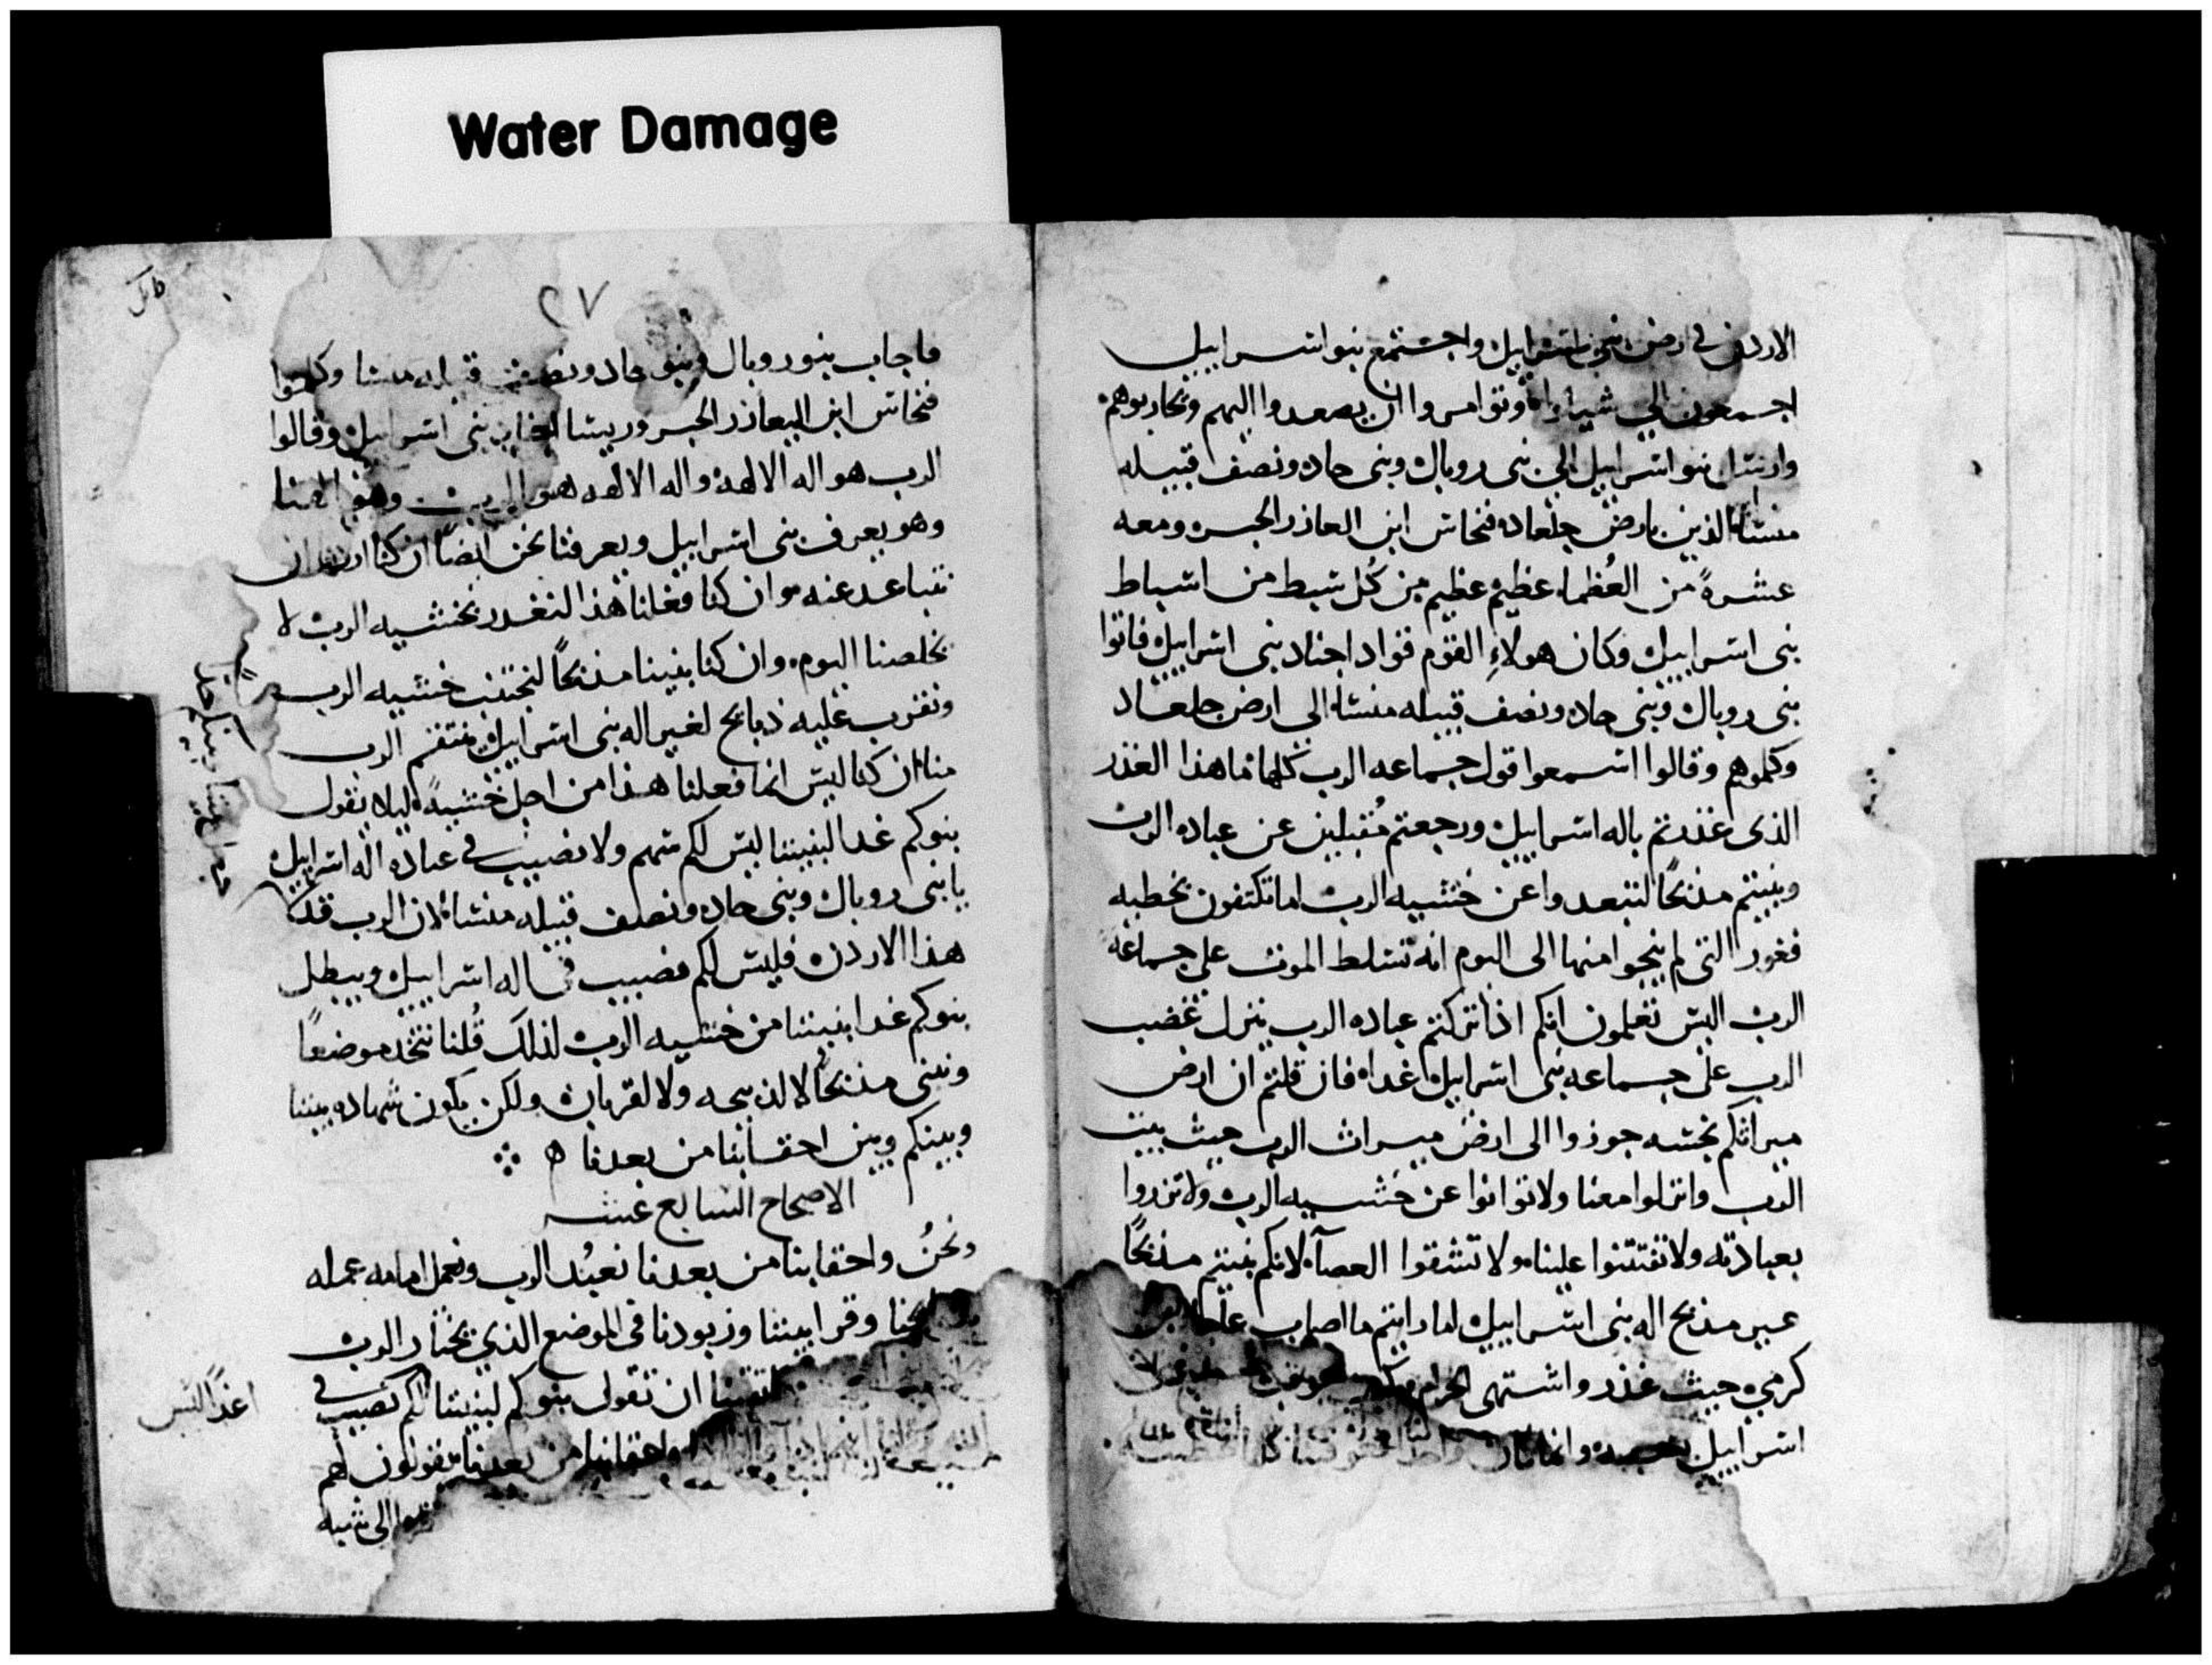 Water Damage
الاردن في ارض بني اسراييل واجتمع بنو اسراييل
اجمعون الي شيلوا وتوامروا ان يصعدوا اليهم ويحاربوهم
وارسل بنو اسراييل الي بني روبال وبني جاد ونصف قبيله
منشا الذين بارض جلعاد فنحاس ابن العازر الحبر ومعه
عشرةً من العُظما عظيم عظيم من كُل سبط من اسباط
بني اسراييل وكان هولاءِ القوم قواد اجناد بني اسراييل فاتوا
بني روبال وبني جاد ونصف قبيله منشا الي ارض جلعاد
وكلموهم وقالوا اسمعوا قول جماعه الرب كلها ما هذا الغدر
الذي غدرتم باله اسراييل ورجعتم مُقبلين عن عباده الرب
وبنيتم مذبحًا لتبعدوا عن خشيه الرب اما تكتفون بخطيه
فغور التي لم ينجوا منها الي اليوم انه تسلط الموت علي جماعه
الرب اليس تعلمون انكم اذا تركتم عباده الرب ينزل غضب
الرب علي جماعه بني اسراييل غداه فان قلتم ان ارض
ميراثكم نجسه جوزوا الي ارض ميراث الرب حيث بيت
الرب وانزلوا معنا ولا توانوا عن خشيه الرب ولا تزدروا
بعبادته ولا تفتتنوا علينا ولا تشقوا العصا لانكم بنيتم مذبحًا
غير مذبح اله بني اسراييل اما رايتم ما اصاب عاجار بن
كرمي حيث غدر واشتهي الحرام
اسراييل
٢٧
فاجاب بنو روبال وبنو جاد ونصف قبيله منشا وكلموا
فنحاس ابن اليعازر الحبر وريسا اجناد بني اسراييل وقالوا
الرب هو اله الالهه واله الالهه هو الرب وهو الهنا
وهو يعرف بني اسراييل ويعرفنا نحن ايضًا ان كنا اردنا ان
نتباعد عنه وان كنا فعلنا هذا لنغدر بخشيه الرب لا
يخلصنا اليوم وان كنا بنينا مذبحًا لنجتنب خشيه الرب
ونقرب عليه ذبايح لغير اله بني اسراييل ينتقم الرب
منا ان كنا ليس انما فعلنا هذا من اجل خشيةً ليلا يقول
بنوكم غدا لبنيننا ليس لكم سهم ولا نصيب في عباده اله اسراييل
يا بني روبال وبني جاد ونصف قبيله منشا لان الرب قد
هذا الاردن فليس لكم نصيب في اله اسراييل ويبطل
بنوكم غدا بنيننا من خشيه الرب لذلك قُلنا نتخد موضعًا
ونبني مذبحًا لا لذبيحه ولا لقربان ولكن يكون شهاده بيننا
وبينكم وبين احقابنا من بعدنا
الاصحاح السابع عشر
ونحنُ واحقابنا من بعدنا نعبُد الرب ونعمل امامه عمله
وقرابيننا وزبودنا في الموضع الذي يختار الرب
ان تقول بنوكم لبنيننا لكم نصيب في
واحقابنا من بعدنا يقولون لهم
الي شبه
غدًا ليس